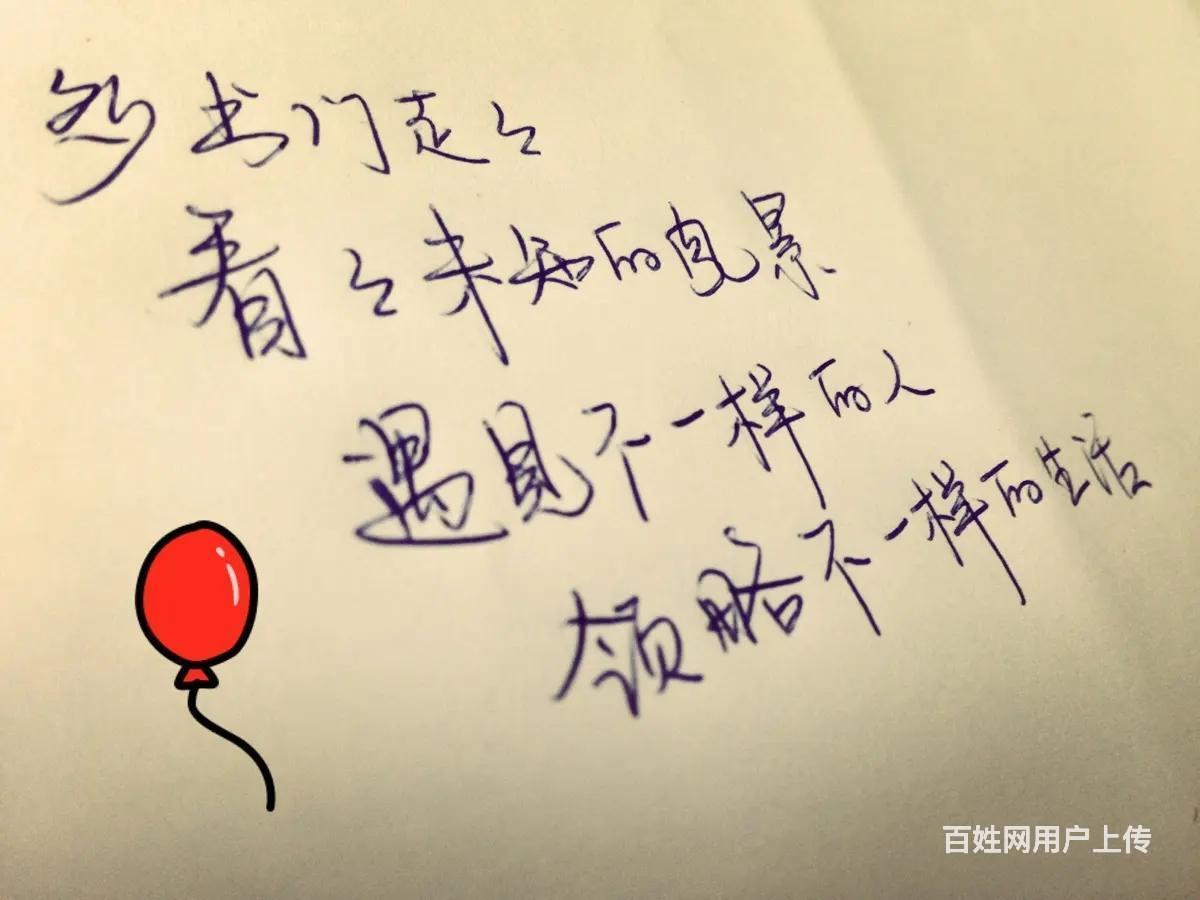 多出门走走
看看未知的风景
遇见不一样的人
领略不一样的生活
百姓网用户上传